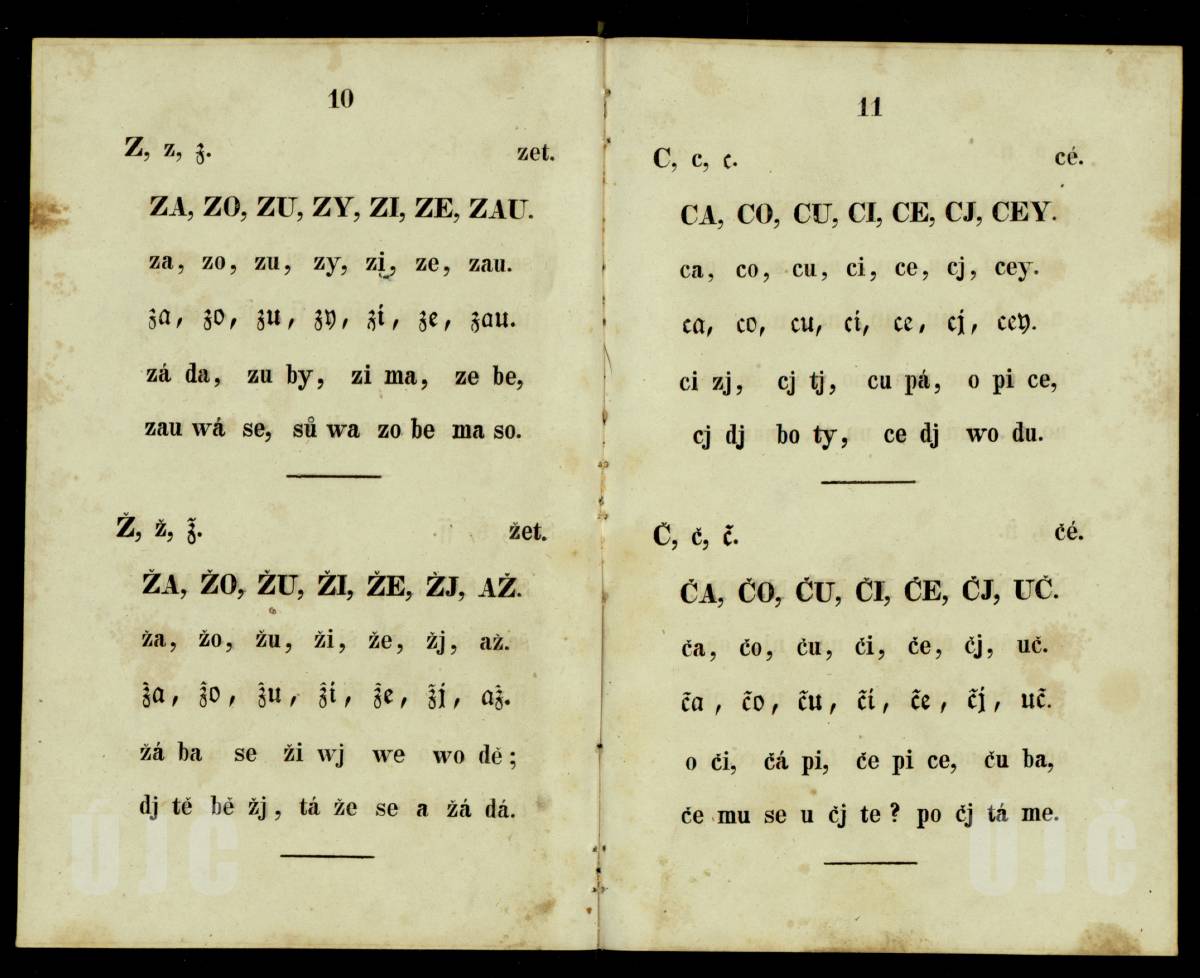 10
Z, z, z. zet.
ZA, ZO, ZU, ZY, ZI, ZE, ZAU.
za, zo, zu, zy, zi, ze, zau.
za, zo, zu, zy, zi, ze, zau.
zá da, zu by, zi ma, ze be,
zau wá se, sů wa zo be ma so.
Ž, ž, ž. žet.
ŽA, ŽO, ŽU, ŽI, ŽE, ŽJ, AŽ.
ža, žo, žu, ži, že, žj, až.
ža, žo, žu, ži, že, žj, až.
žá ba se ži wj we wo dě;
dj tě bě žj, tá že se a žá dá.
11
C, c, c. cé.
CA, CO, CU, CI, CE, CJ, CEY.
ca, co, cu, ci, ce, cj, cey.
ca, co, cu, ci, ce, cj, cey.
ci zj, cj tj, cu pá, o pi ce,
cj dj bo ty, ce dj wo du.
Č, č, č. čé.
ČA, ČO, ČU, ČI, ČE, ČJ, UČ.
ča, čo, ču, či, če, čj, uč.
ča, čo, ču, či, če, čj, uč.
o či, čá pi, če pi ce, ču ba,
če mu se u čj te? po čj tá me.
ÚJČ
ÚJČ